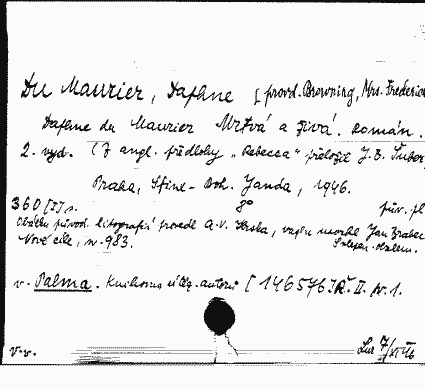 Du Maurier, Daphne [provd. Browning, Mrs. Frederick
Daphne du Maurier Mrtvá a živá. Román.
2. vyd. (Z angl. předlohy „Rebecca“ přeložil J. B. Šuber
Praha, Sfinx - Boh. Janda, 1946.
360 [I] s. 8° pův. pl
Obálku původ. litografií provedl A. V. Hrska, vazbu navrhl Jan Brabec
Nové cíle, sv. 983.
v. Palma. Knihovna autorů [1465767 R. II. sv. 1.
v. v.